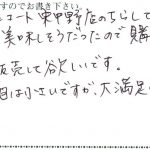 すのでお書き下さい。
コート東中野店のちらしで
美味しそうだったので購
販売して欲しいです。
目は小さいですが、大満足